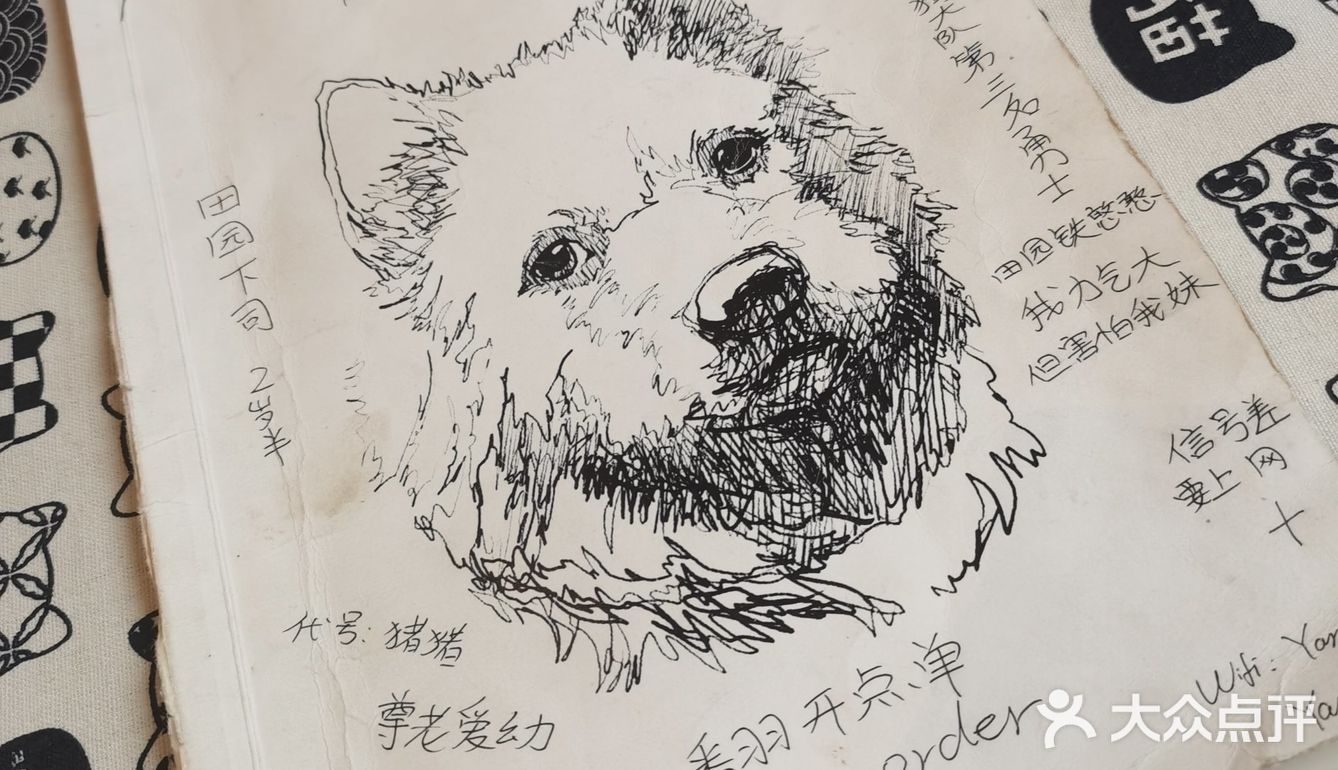 田园下司
2岁半
犬队第三名勇士
田园铁憨憨
我力气大
但害怕我妹
信号差
要上网
代号:猪猪
尊老爱幼
翻开点单
order
Wifi:
大众点评